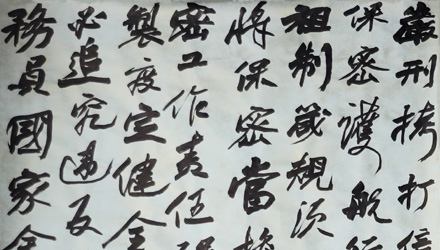 嚴刑拷打信
保密護航
祖制箴規須
將保密當
密工作責任
製度定健全
必追究違反
務員國家全